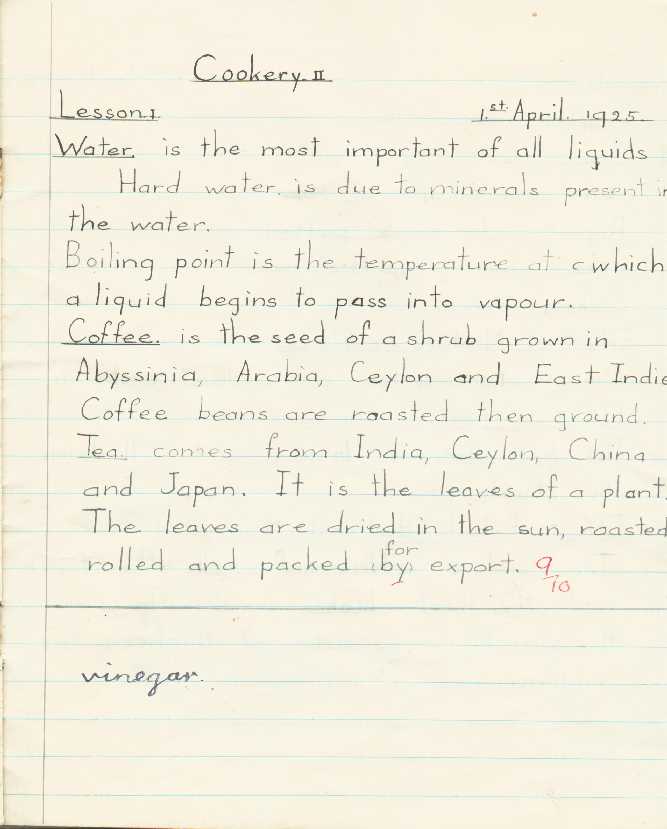 Cookery. II
Lesson 1. 1st. April. 1925.
Water. is the most important of all liquids
Hard water. is due to minerals present in
the water.
Boiling point is the temperature at which
a liquid begins to pass into vapour.
Coffee. is the seed of a shrub grown in
Abyssinia, Arabia, Ceylon and East Indie
Coffee beans are roasted then ground.
Tea. comes from India, Ceylon, China
and Japan. It is the leaves of a plant.
The leaves are dried in the sun, roasted
for
rolled and packed (by) export. 9/10
vinegar.